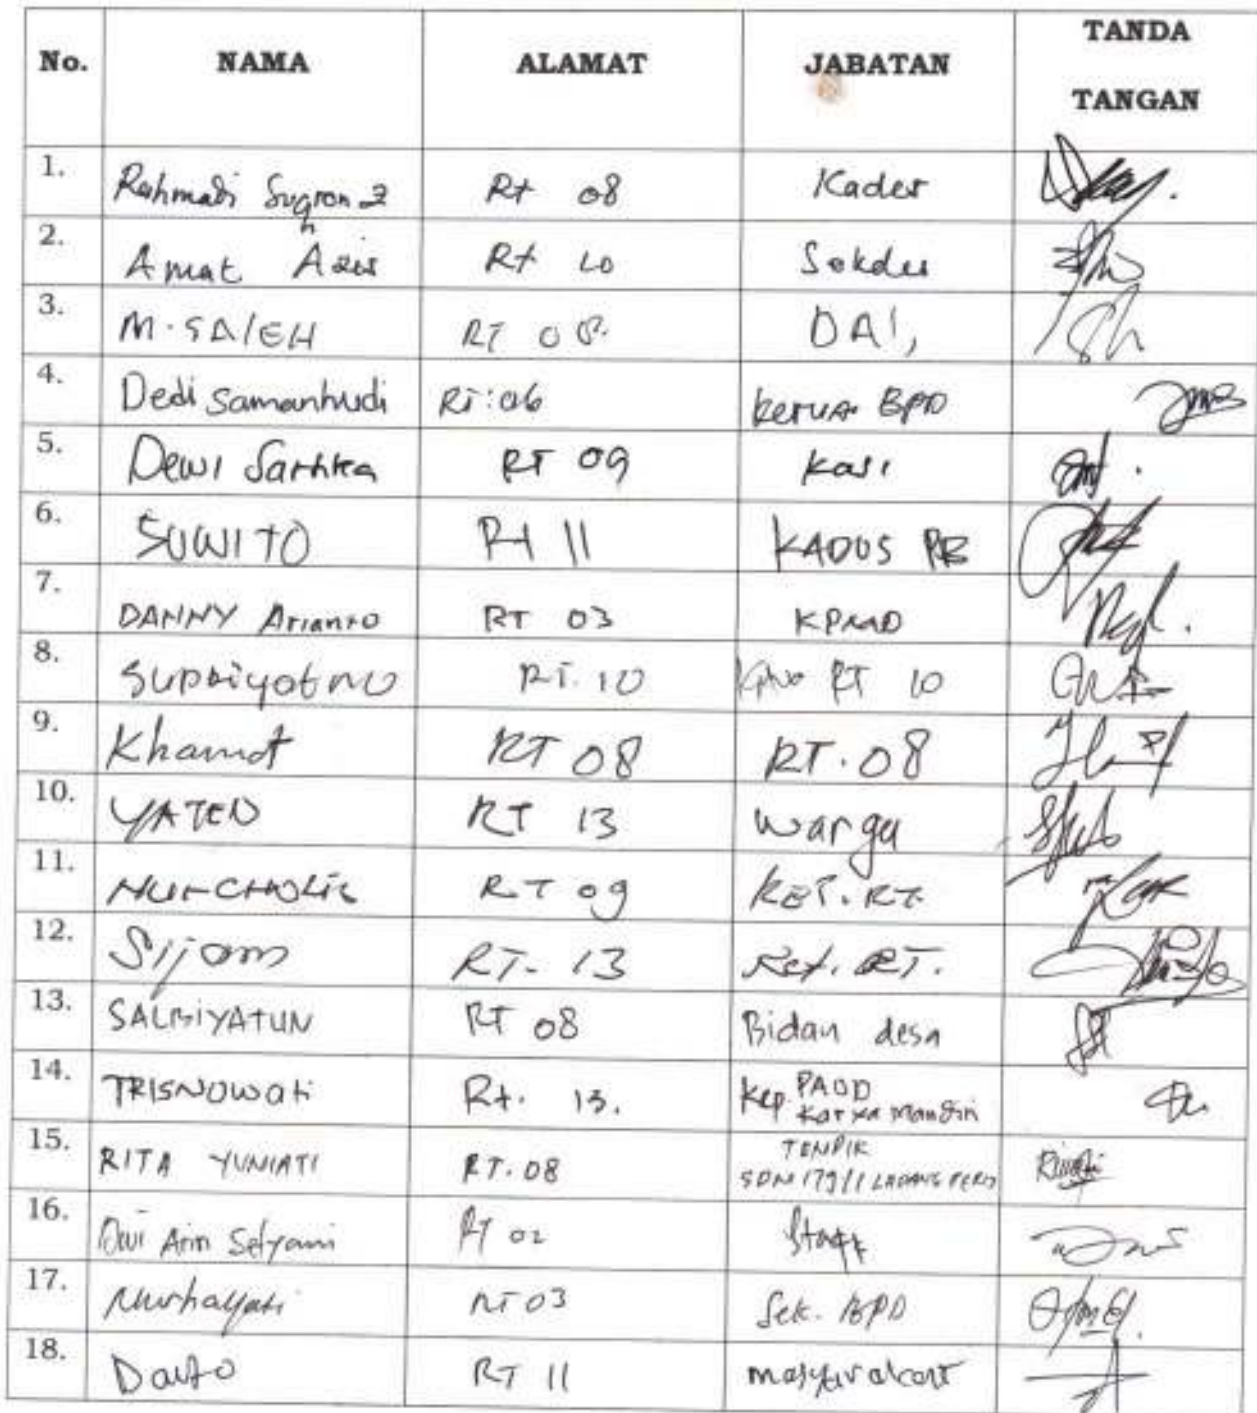 No. NAMA ALAMAT JABATAN TANDA TANGAN
1. Rahmadi Rt 08 Kader
2. Amat Azis Rt 10 Sekdes
3. M. SALEH RT 08 DAI,
4. Dedi Samanhudi RT:06 Ketua BPD
5. Dewi Sartika RT 09 Kasi
6. SUWITO Rt 11 KADUS PB
7. DANNY Arianto RT 03 KPMD
8. Supriyotno RT. 10 RT 10
9. Khamdt RT 08 RT. 08
10. YATEN RT 13 warga
11. NURCHOLIS RT 09 KET. RT.
12. Sijam RT. 13 Ket. RT.
13. SALBIYATUN RT 08 Bidan desa
14. TRISNOWati Rt. 13. Kep. PAUD Karya Mandiri
15. RITA YUNIATI RT. 08 TENDIK SDN 179/1 LADANG PERIS
16. Dwi Arin Setyani RT 02 Staff
17. Nurhayati RT 03 Sek. BPD
18. Darto RT 11